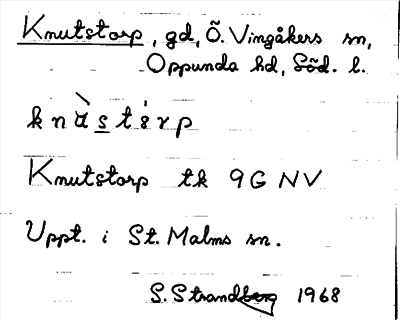 Knutstorp, gd, Õ. Vingåkers sn,
Oppunda hd, Söd. l.
knùstȯrp
Knutstorp tk 9G NV
Uppt. i St. Malms sn.
S. Strandberg 1968